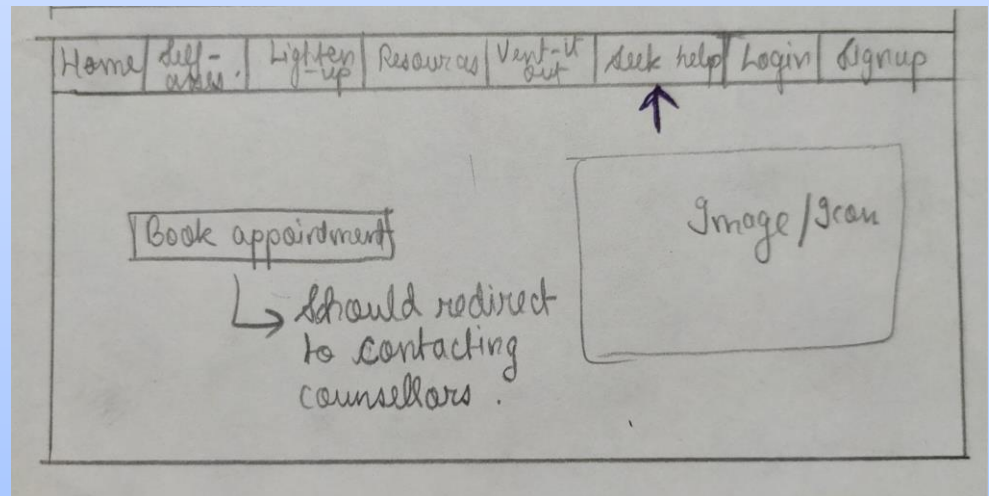 Home Self-asses. Lighten-up Resources Vent-it out Seek help Login Signup
Book appointment
Image/Icon
Should redirect
to contacting
counsellors.